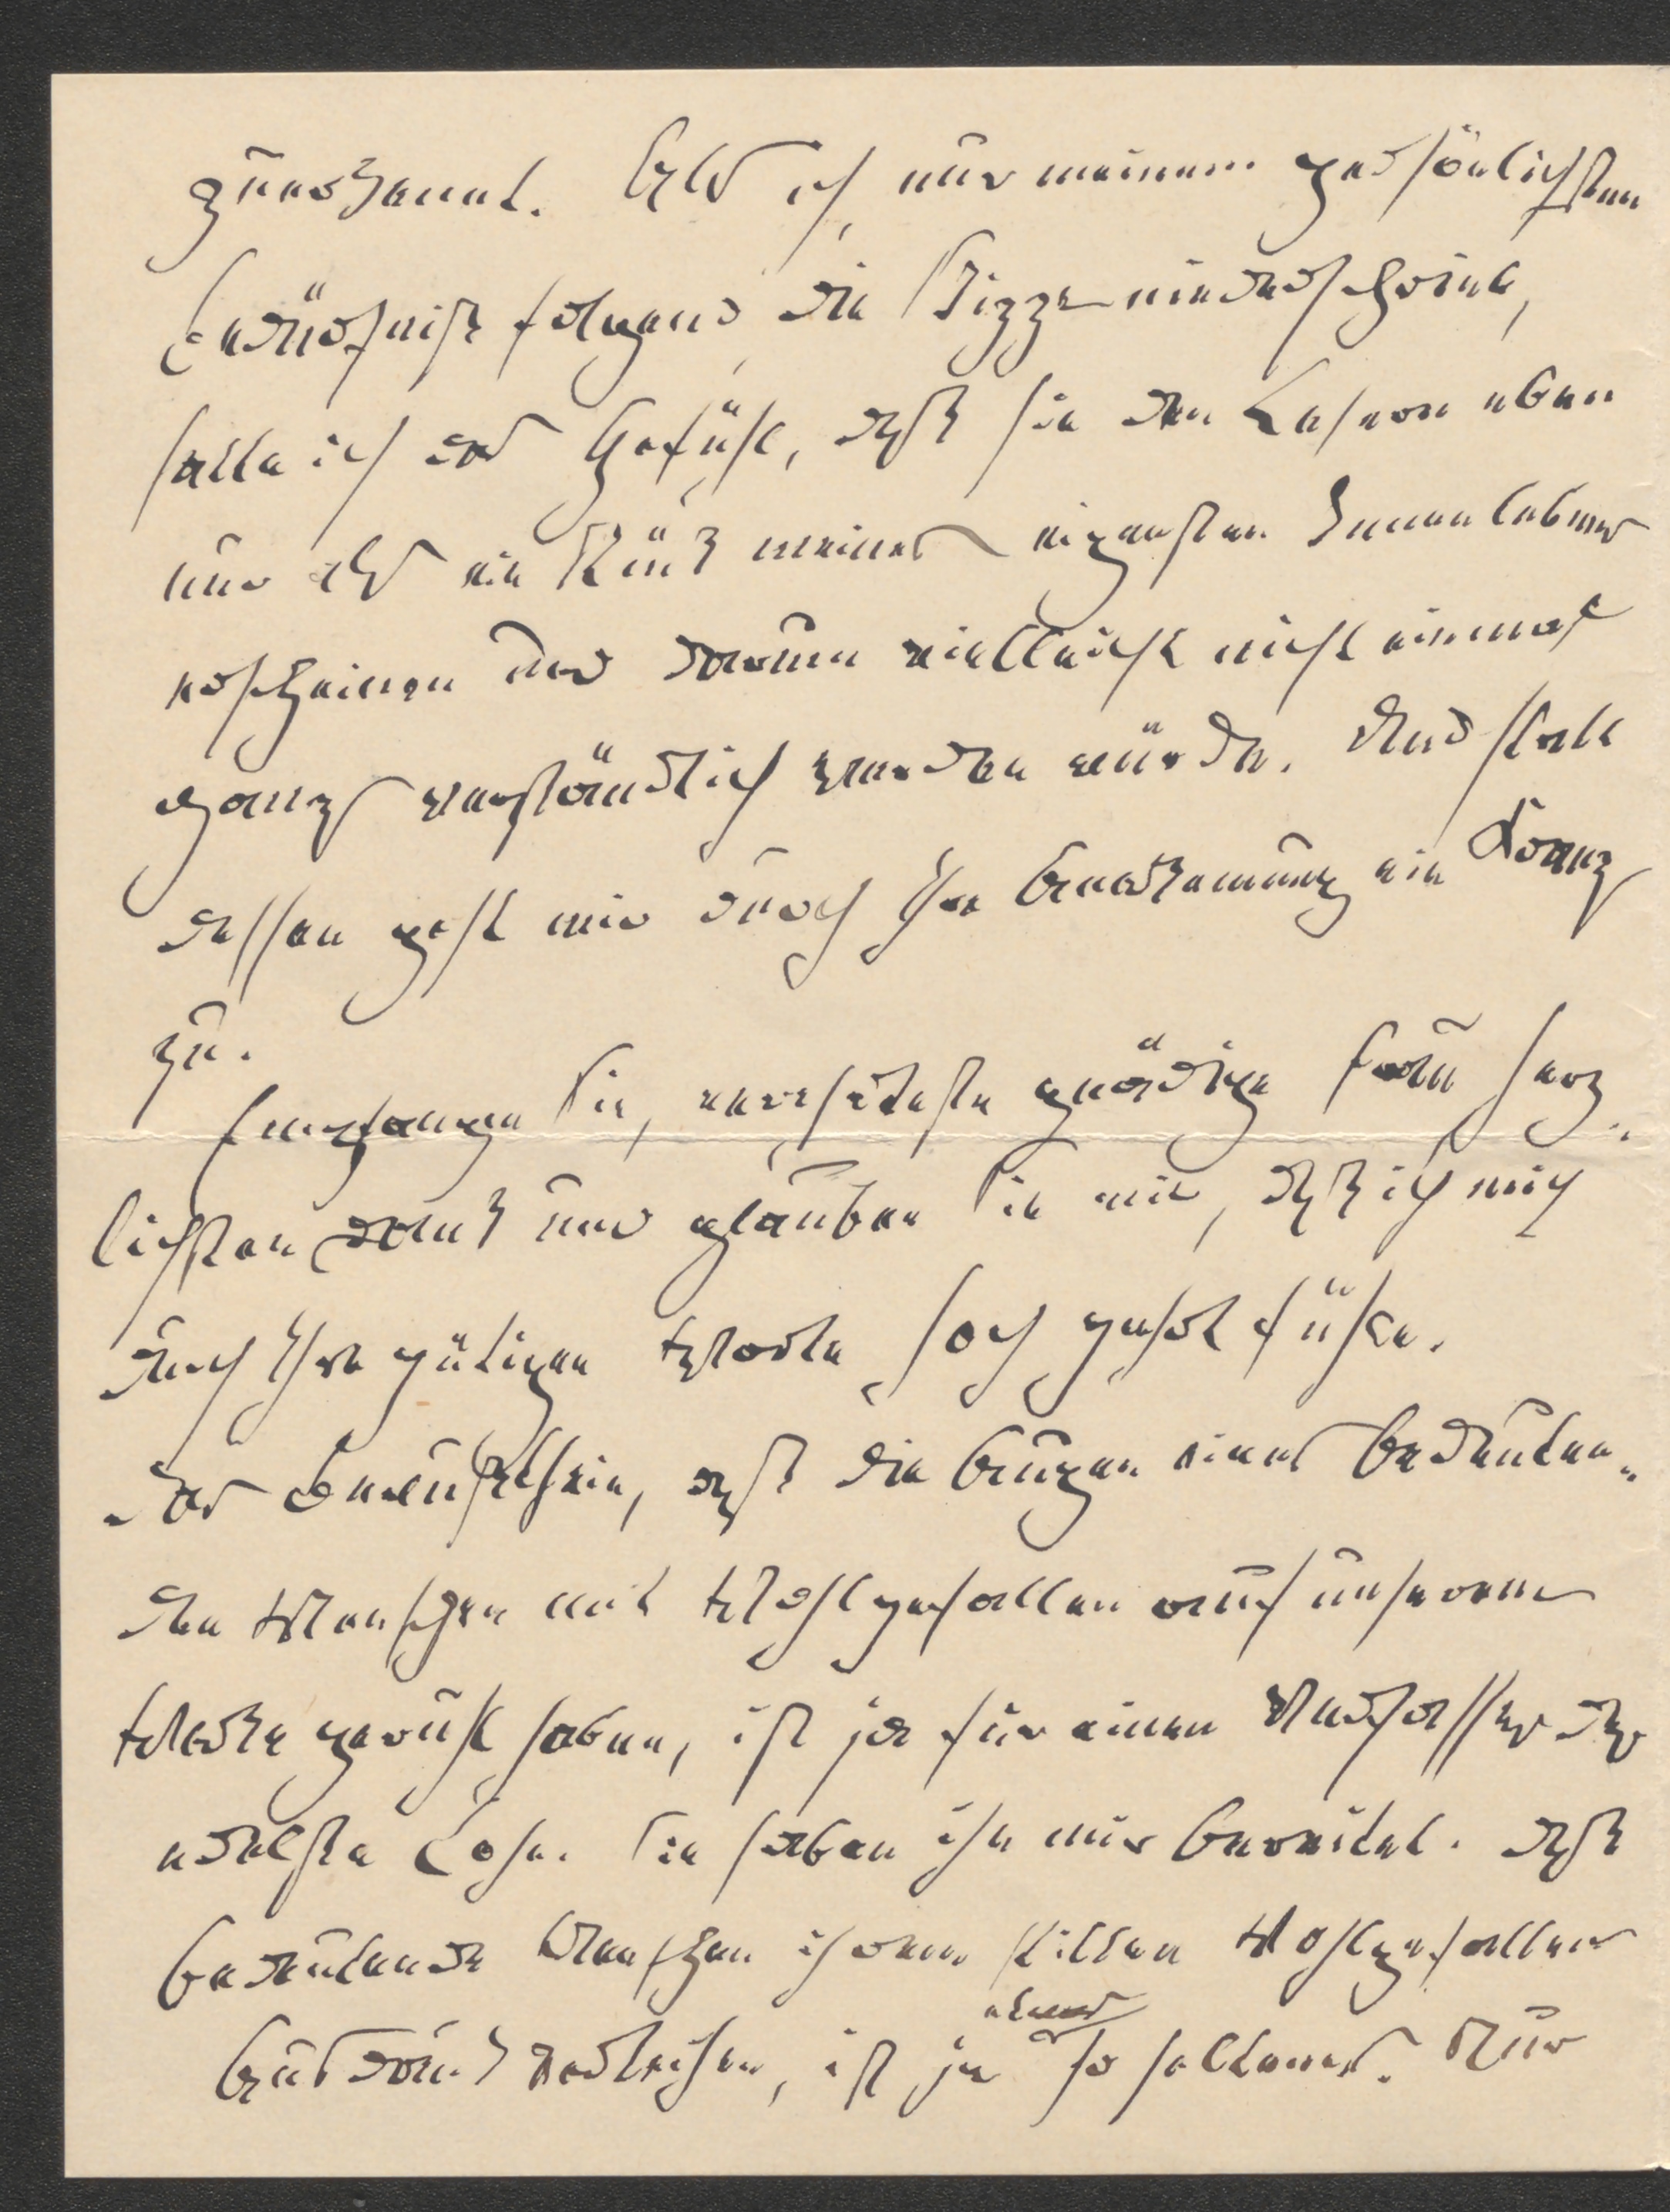 zuerkannt. Als ich, nur meinem persönlichsten
Bedürfniß folgend, die Skizze niederschrieb,
hatte ich das Gefühl, daß sie den Lesern eben
nur als ein Stück meines eigensten Innenlebens
erscheinen und darum vielleicht nicht einmal
ganz verständlich werden würde. Und statt
dessen geht mir durch Ihre Anerkennung ein Kranz
zu.
Empfangen Sie, verehrteste gnädige Frau herz-
lichsten Dank und glauben Sie mir, daß ich mich
durch Ihre gütigen Worte hoch geehrt fühle.
Das Bewußtsein, daß die Augen eines bedeuten-
den Menschen mit Wohlgefallen auf unserem
Werke geruht haben, ist ja für einen Verfasser der
edelste Lohn. Sie haben ihn mir bereitet. Daß
bedeutende Menschen ihrem stillen Wohlgefallen
Ausdruck verleihen, ist ja etwas so seltenes. Nur